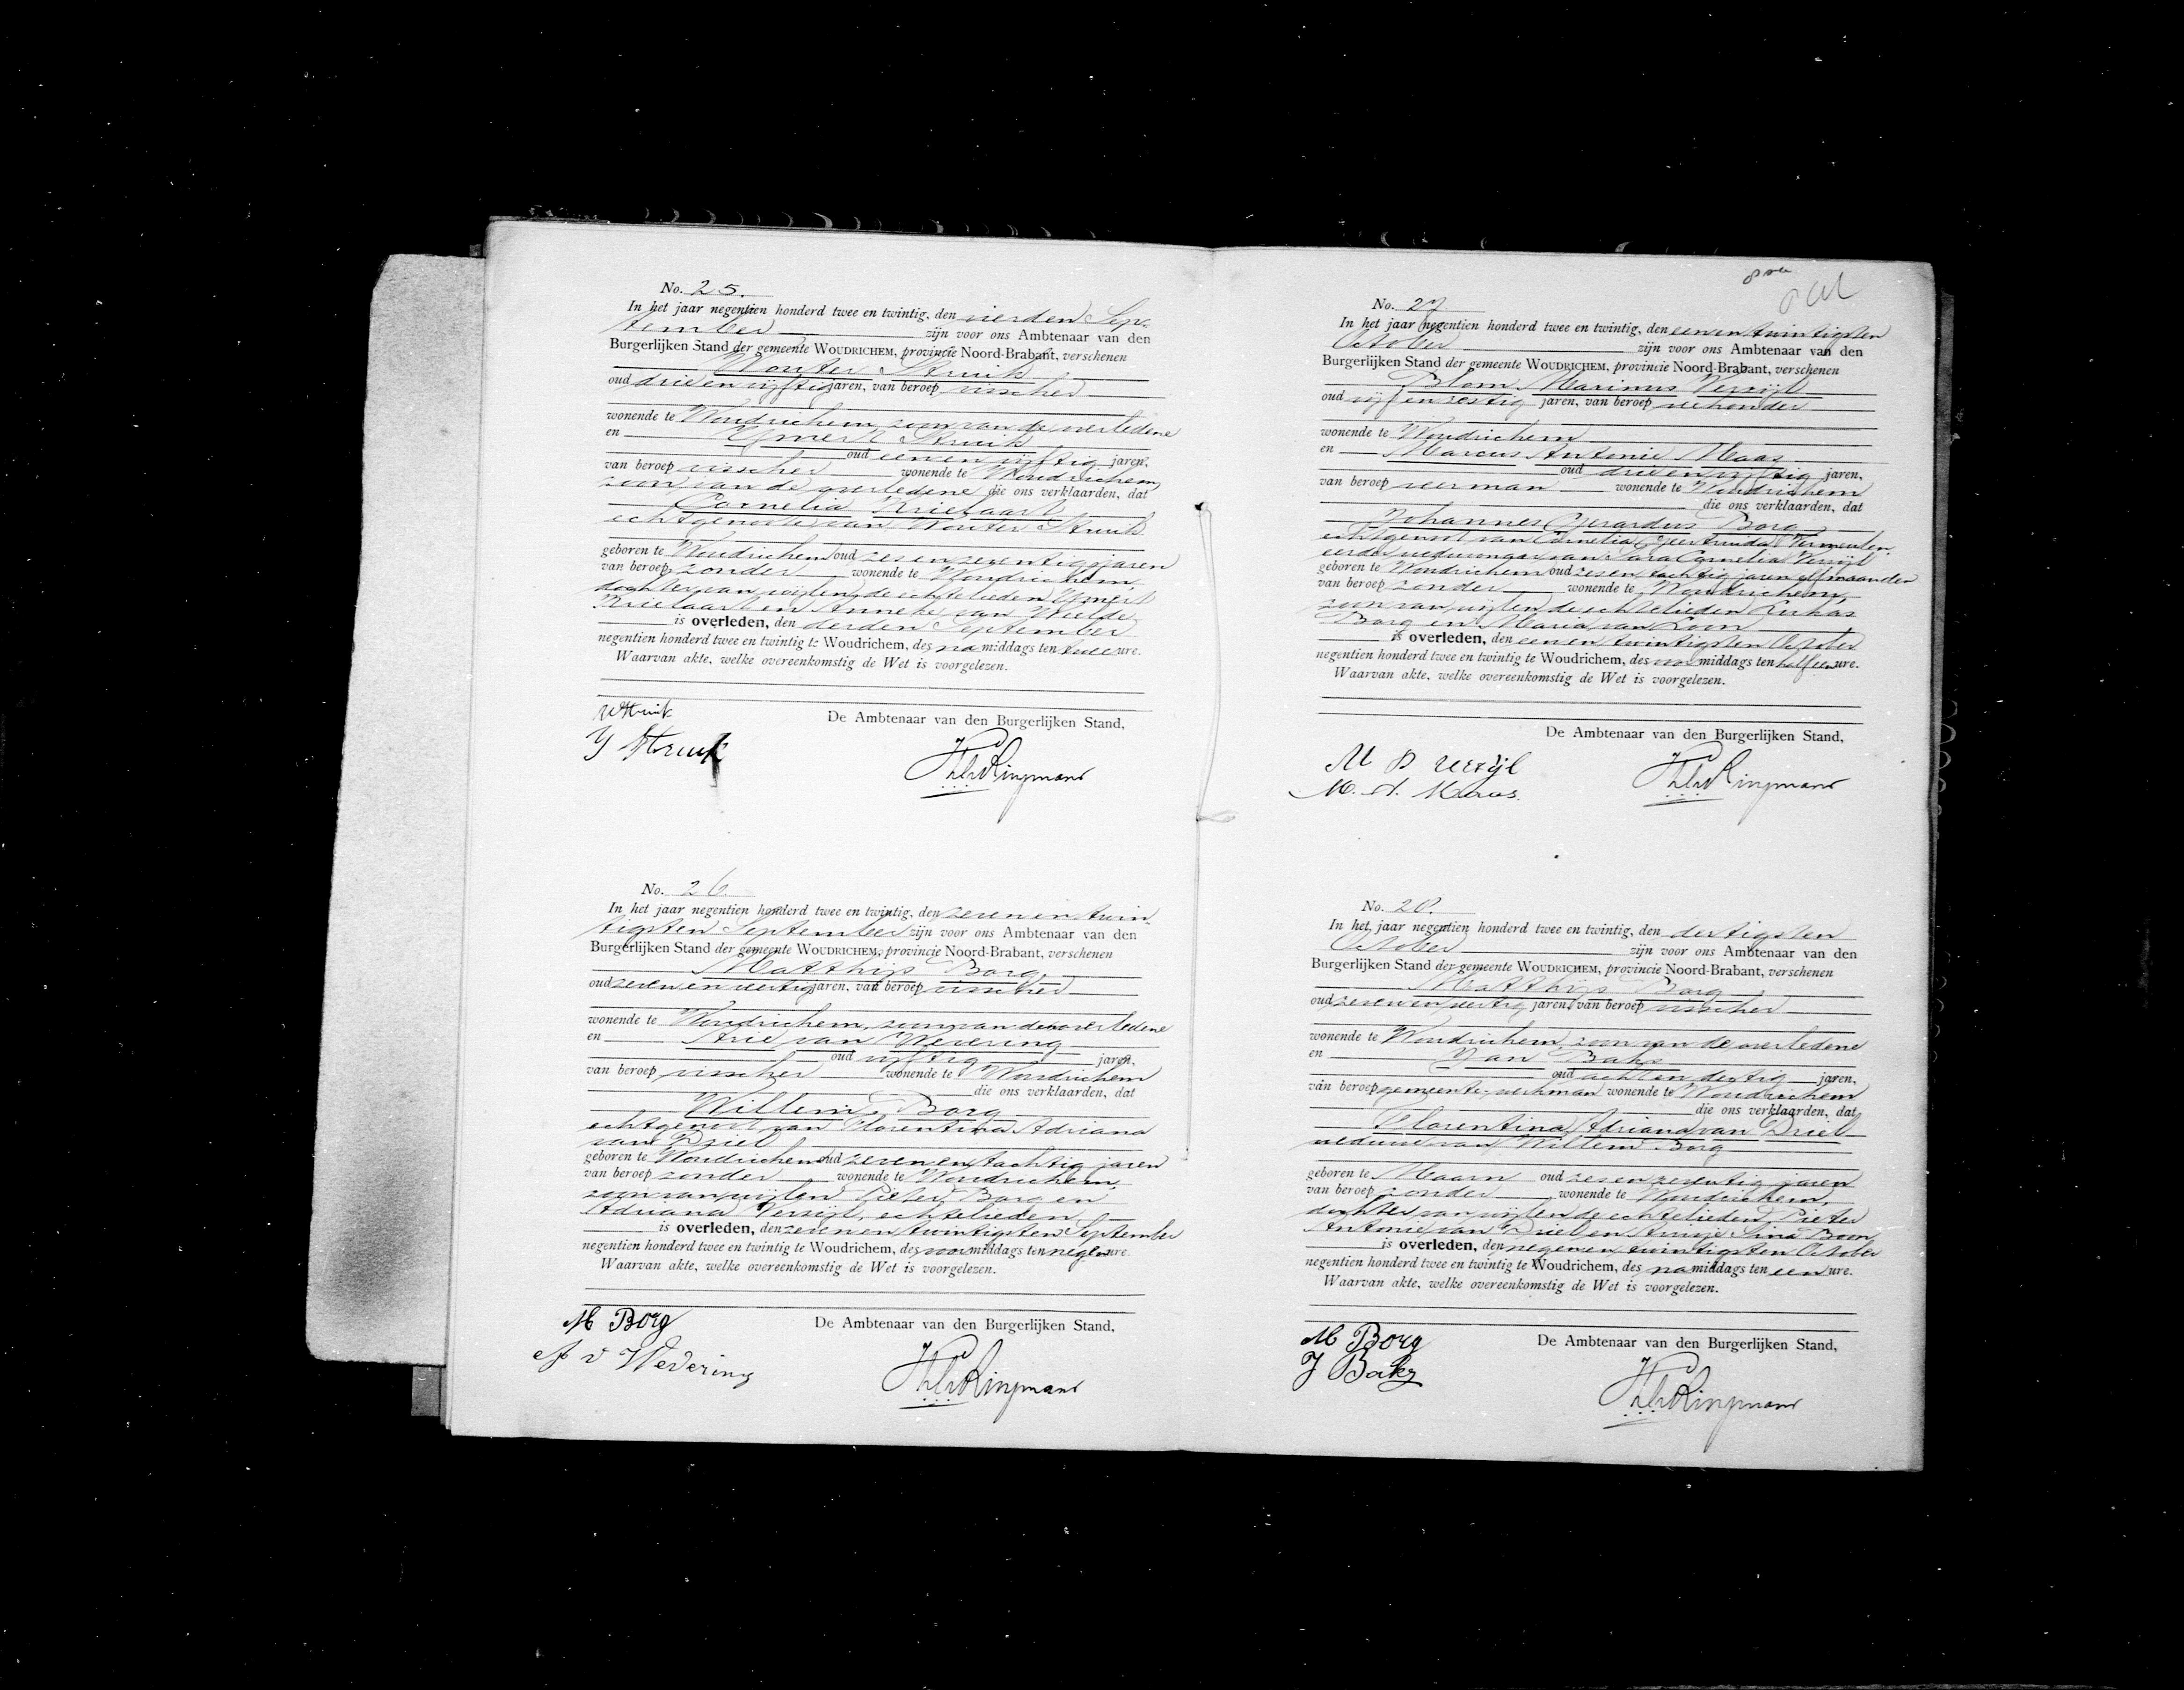 No. 25.
In het jaar negentien honderd twee en twintig, den vierden Sep-
tember zijn voor ons Ambtenaar van den
Burgerlijken Stand der gemeente WOUDRICHEM, provincie Noord-Brabant, verschenen
Wouter Struik
oud drie en vijftig jaren, van beroep visscher
wonende te Woudrichem, zoon van de overledene
en IJmert Struik
oud een en vijftig jaren,
van beroep visscher wonende te Woudrichem,
zoon van de overledene die ons verklaarden, dat
Cornelia Krielaart
echtgenoote van Wouter Struik
geboren te Woudrichem oud zes en zeventig jaren
van beroep zonder wonende te Woudrichem,
dochter van wijlen de echtelieden IJmert
Krielaart en Anneke van Wielde
is overleden, den derden September
negentien honderd twee en twintig te Woudrichem, des namiddags ten twee ure.
Waarvan akte, welke overeenkomstig de Wet is voorgelezen.
De Ambtenaar van den Burgerlijken Stand,
W Struik
IJ Struik
No. 26.
In het jaar negentien honderd twee en twintig, den zeven en twin
tigsten September zijn voor ons Ambtenaar van den
Burgerlijken Stand der gemeente WOUDRICHEM, provincie Noord-Brabant, verschenen
Matthijs Borg,
oud zeven en veertig jaren, van beroep visscher
wonende te Woudrichem, zoon van den overledene
en Arie van Wevering
oud vijftig jaren,
van beroep visscher wonende te Woudrichem
die ons verklaarden, dat
Willem Borg
echtgenoot van Florentina Adriana
van Driel
geboren te Woudrichem oud zeven en tachtig jaren
van beroep zonder wonende te Woudrichem,
zoon van wijlen Pieter Borg en
Adriana Versijl, echtelieden
is overleden, den zeven en twintigsten September
negentien honderd twee en twintig te Woudrichem, des voormiddags ten negen ure.
Waarvan akte, welke overeenkomstig de Wet is voorgelezen.
De Ambtenaar van den Burgerlijken Stand,
M Borg
A v Wevering
No. 27
In het jaar negentien honderd twee en twintig, den een en twintigsten
October zijn voor ons Ambtenaar van den
Burgerlijken Stand der gemeente WOUDRICHEM, provincie Noord-Brabant, verschenen
Blom Marinus Versijl
oud vijf en zestig jaren, van beroep veehouder
wonende te Woudrichem
en Marcus Antonie Maas
oud drie en vijftig jaren,
van beroep veerman wonende te Woudrichem
die ons verklaarden, dat
Johannes Gerardus Borg
echtgenoot van Cornelia Geertruida Vermeulen,
eerder weduwnaar van Sara Cornelia Versijl
geboren te Woudrichem oud zes en tachtig jaren elf maanden
van beroep zonder wonende te Woudrichem,
zoon van wijlen de echtelieden Lukas
Borg en Maria van Loon
is overleden, den een en twintigsten October
negentien honderd twee en twintig te Woudrichem, des middags ten half een ure.
Waarvan akte, welke overeenkomstig de Wet is voorgelezen.
De Ambtenaar van den Burgerlijken Stand,
M. A. Maas.
No. 28.
In het jaar negentien honderd twee en twintig, den dertigsten
October zijn voor ons Ambtenaar van den
Burgerlijken Stand der gemeente WOUDRICHEM, provincie Noord-Brabant, verschenen
Matthijs Borg
oud zeven en veertig jaren, van beroep visscher
wonende te Woudrichem, zoon van de overledene
en Jan Bakz
oud acht en dertig jaren,
van beroep gemeente-werkman wonende te Woudrichem
die ons verklaarden, dat
Florentina Adriana van Driel
weduwe van Willem Borg
geboren te Maarn oud zes en zeventig jaren
van beroep zonder wonende te Woudrichem,
dochter van wijlen de echtelieden Pieter
Antonie van Driel en Antje Sina Boon
is overleden, den negen en twintigsten October
negentien honderd twee en twintig te Woudrichem, des namiddags ten een ure.
Waarvan akte, welke overeenkomstig de Wet is voorgelezen.
De Ambtenaar van den Burgerlijken Stand,
M Borg
J Bakz